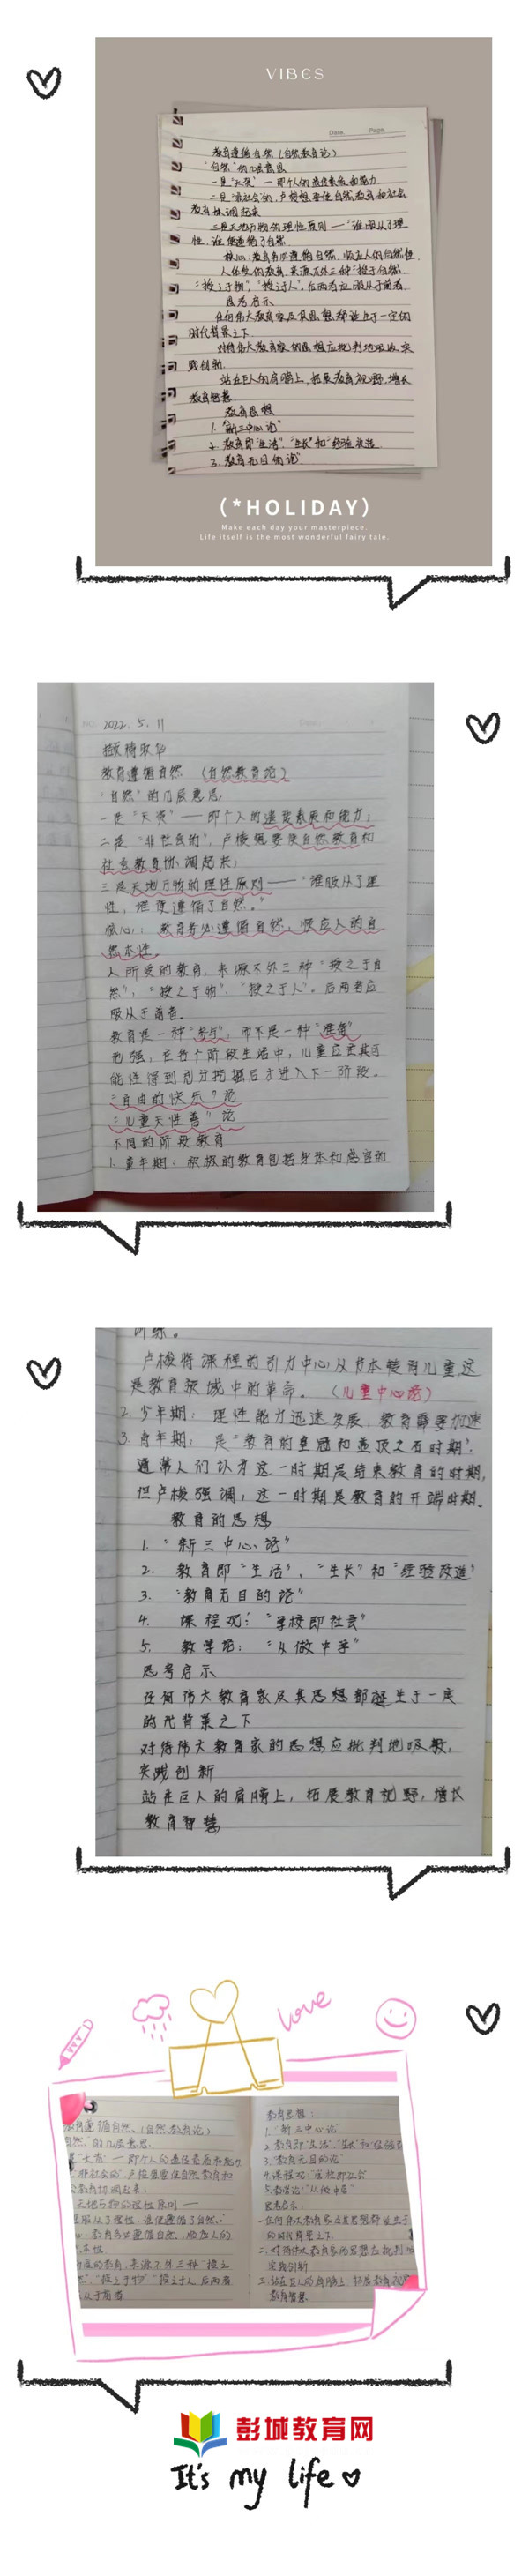 VIBES
Date. Page.
教育遵循自然（自然教育论）
"自然"的几层意思
一是"天资"一即个人的遗传素质和能力.
二是"非社会的,卢梭想要使自然教育和社会
教育协调起来
三是天地万物的理性原则一"谁服从了理
性,谁便遵循了自然
核心:教育务必遵循自然、顺应人的自然性.
人所受的教育,来源不外三种"授于自然、
"授之于物","授于人".后两者应服从于前者.
思考启示
任何伟大教育家及其思想都诞生于一定的
时代背景之下.
对待伟大教育家的思想应批判地吸收,实
践创新.
站在巨人的肩膀上,拓展教育视野,增长
教育智慧.
教育思想
1."新三中心论"
2.教育即"生活"、"生长"和"经验改造
3.教育无目的论"
(*HOLIDAY)
Make each day your masterpiece.
Life itself is the most wonderful fairy tale.
NO. 2022. 5. 11
撷精取华
教育遵循自然 (自然教育论)
"自然"的几层意思
一是"天资"——即个人的遗传素质和能力;
二是"非社会的",卢梭想要使自然教育和
社会教育协调起来;
三是天地万物的理性原则——"谁服从了理
性,谁便遵循了自然。"
核心:教育务必遵循自然,顺应人的自
然本性。
人所受的教育,来源不外三种"授之于自
然","授之于物"、"授之于人"。后两者应
服从于前者。
教育是一种"参与",而不是一种"准备"
他强,在各个阶段生活中,儿童应当其可
能性得到充分挖掘后才进入下一阶段。
"自由的快乐"论
"儿童天性善"论
不同的阶段教育
1.童年期:积极的教育包括身体和感官的
训练。
卢梭将课程的引力中心从书本转向儿童,这
是教育领域中的革命。(儿童中心论)
2.少年期:理性能力迅速发展,教育需要加速
3.青年期:是"教育的皇冠和盖顶之石时期".
通常人们认为这一时期是结束教育的时期,
但卢梭强调,这一时期是教育的开端时期。
教育的思想
1."新三中心论"
2.教育即"生活","生长"和"经验改造"
3."教育无目的论"
4.课程观:"学校即社会"
5.教学论:"从做中学"
思考启示
任何伟大教育家及其思想都诞生于一定
的代背景之下
对待伟大教育家的思想应批判地吸教,
实践创新
站在巨人的肩膀上,拓展教育视野,增长
教育智慧
love
教育遵循自然.(自然教育论)
自然"的几层意思.
"天资"一即个人的遗传素质和能力
非社会的",卢梭想要使自然教育和
会教育协调起来;
天地万物的理性原则一
服从了理性,谁便遵循了自然."
:教育务必遵循自然,顺应人的
本性.
受的教育,来源不外三种"授之
","授之于物""授之于人.后两者
从于前者
教育思想:
1."新三中心论"
2.教育即"生活","生长"和"经验
3.教育无目的论"
4.课程观:"学校即社会
5.教学论:"从做中学"
思考启示:
一.任何伟大教育家及其思想都诞生于
的时代背景之下.
二.对待伟大教育家的思想应批判地
实践创新
三.站在巨人的肩膀上,拓展教育视野
教育智慧.
彭城教育网
It's my life